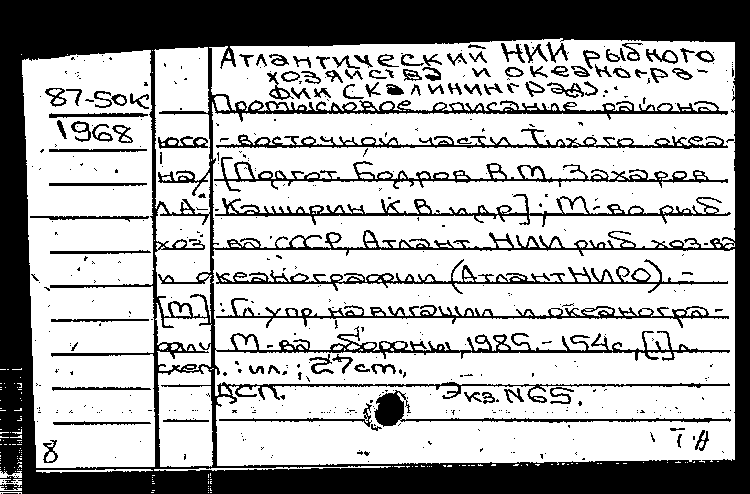 Атлантический НИИ рыбного
хозяйства и океаногра-
фии (Калининград)..
87-50к Промысловое описание района
1968 юго-восточной части Тихого океа-
на / [Подгот. Бодров В.М., Захаров
Л.А., Каширин К.В. и др]; М-во рыб.
хоз-ва СССР, Атлант. НИИ рыб. хоз-ва
и океанографии (АтлантНИРО). –
[М.] : Гл. упр. навигации и океаногра-
фии М-ва обороны, 1985. – 154с., [1] л.
схем. : ил.; 27 см.,
ДСП. Экз. N65.
8 Т А